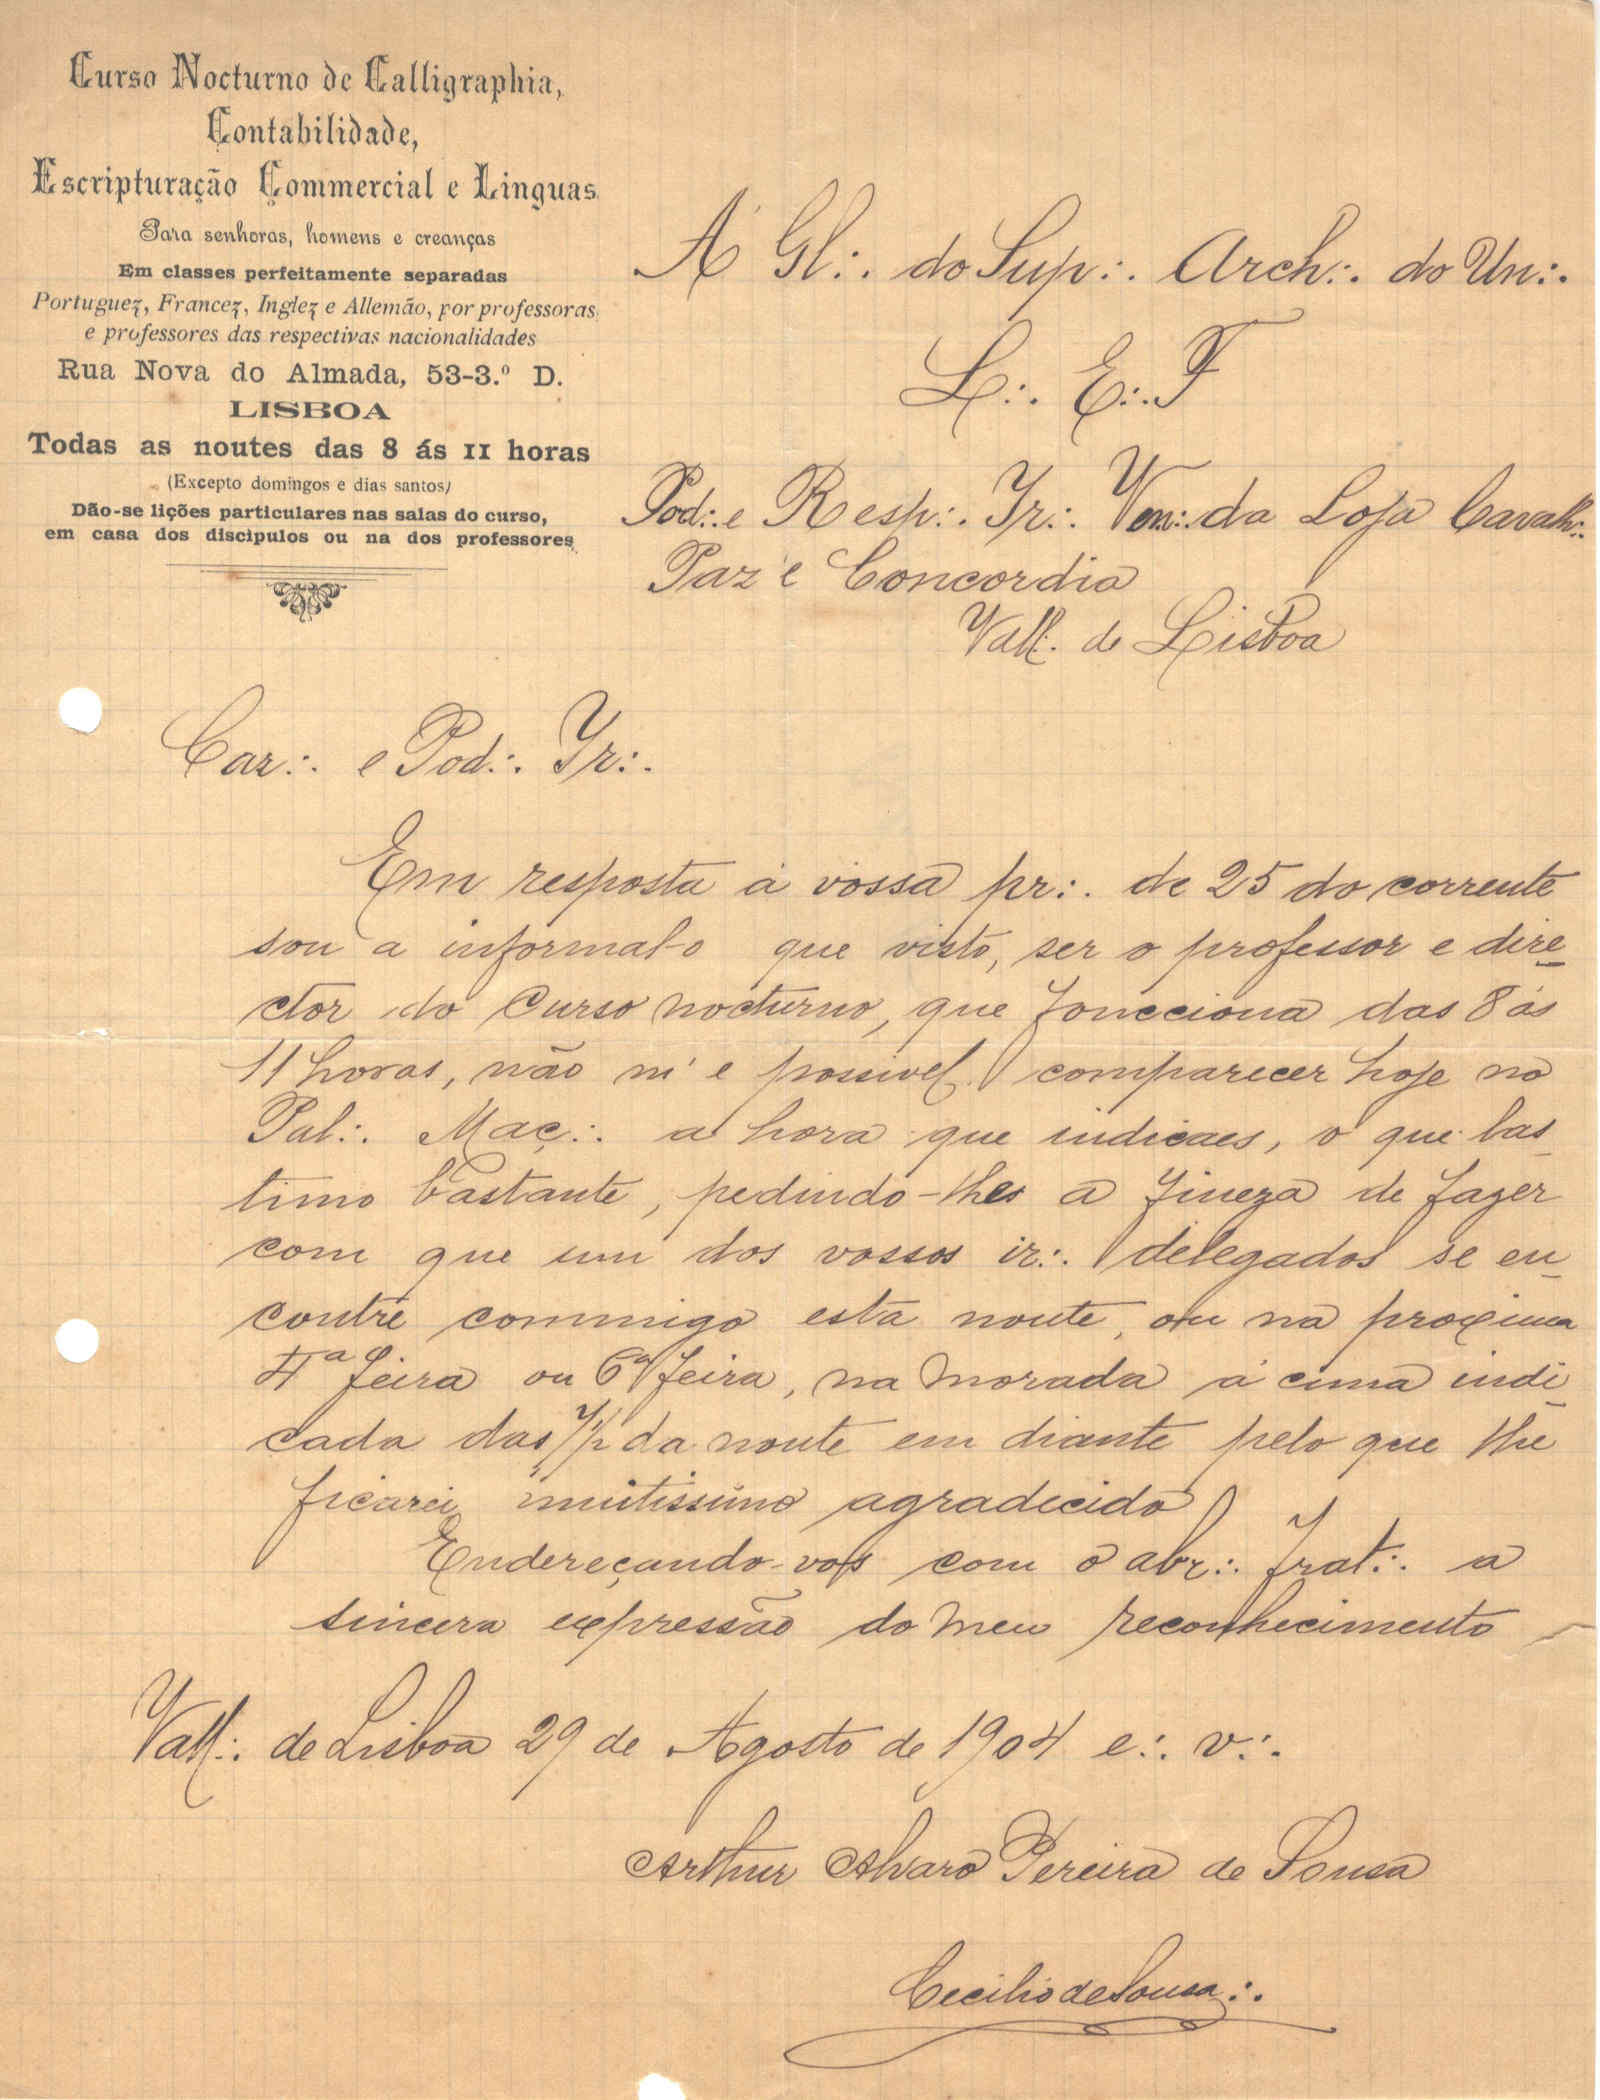 Curso Nocturno de Calligraphia,
Contabilidade,
Escripturação Commercial e Linguas
Para senhoras, homens e creanças
Em classes perfeitamente separadas
Portuguez, Francez, Inglez e Allemão, por professoras
e professores das respectivas nacionalidades
Rua Nova do Almada, 53-3.º D.
LISBOA
Todas as noutes das 8 ás 11 horas
(Excepto domingos e dias santos)
Dão-se lições particulares nas salas do curso,
em casa dos discipulos ou na dos professores
Á Gl∴ do Sup∴ Arch∴ do Un∴
L∴ E∴ F
Pod∴ e Resp∴ Ir∴ Ven∴ da Loja Cavalh∴
Paz e Concordia
Vall∴ de Lisboa
Car∴ e Pod∴ Ir∴
Em resposta á vossa pr∴ de 25 do corrente
sou a informal-o que visto, ser o professor e dire-
ctor do Curso nocturno, que foncciona das 8 ás
11 horas, não m'e possivel comparecer hoje no
Pal∴ Maç∴ a hora que indicaes, o que las-
timo bastante, pedindo-lhes a fineza de fazer
com que um dos vossos ir∴ delegados se en-
contre commigo esta noute, ou na proxima
4ª feira ou 6ª feira, na morada á cima indi-
cada das 7 1/2 da noute em diante pelo que lhe
ficarei muitissimo agradecido
Endereçando-vos com o abr∴ frat∴ a
sincera expressão do meu reconhecimento
Vall∴ de Lisboa 29 de Agosto de 1904 e∴ v∴
Arthur Alvaro Pereira de Sousa
Cecilio de Sousa∴